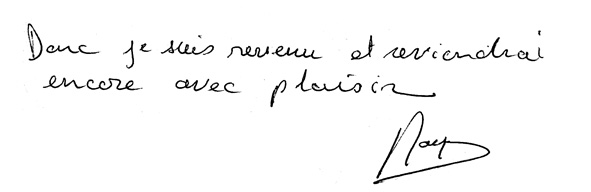 Donc je suis revenu et reviendrai
encore avec plaisir